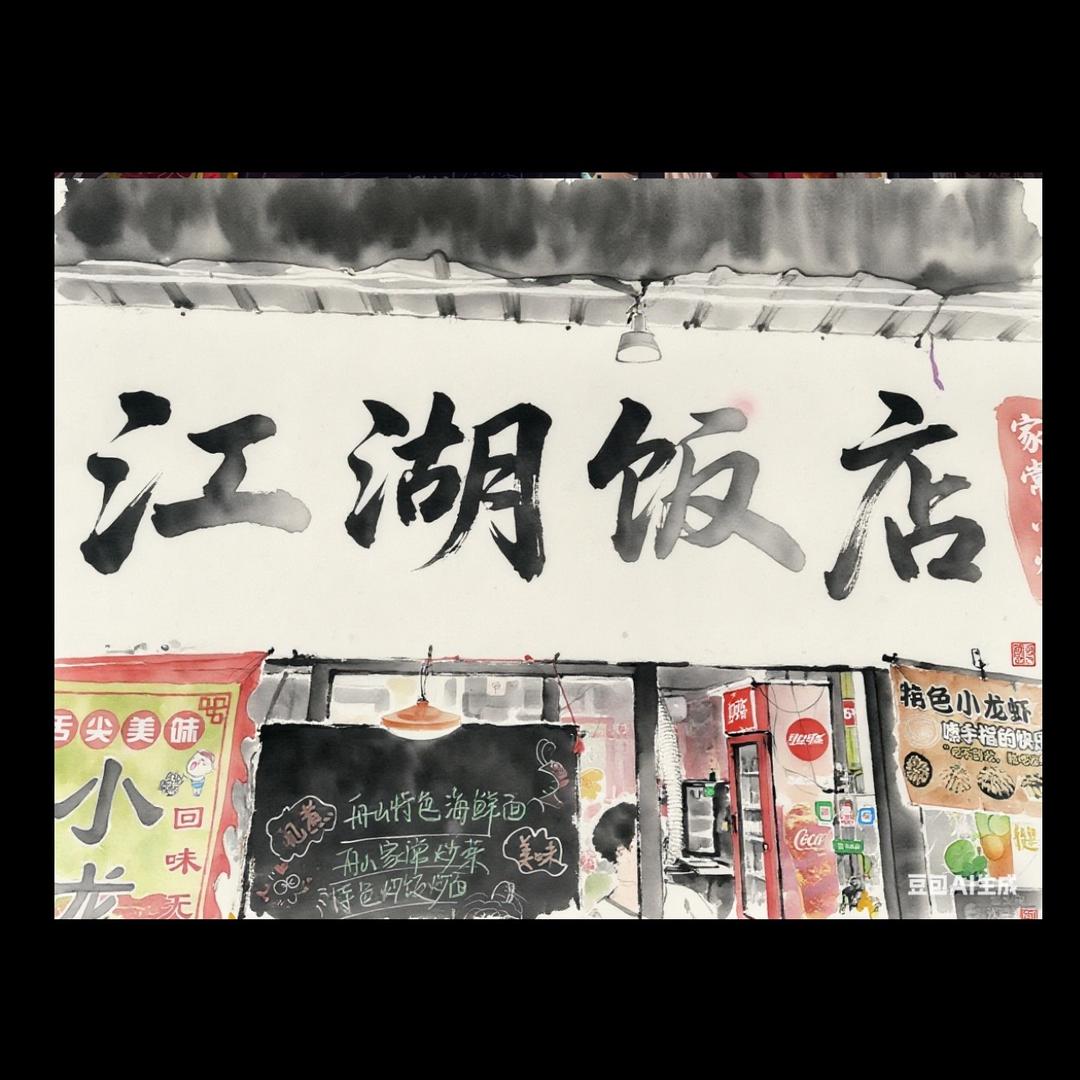 江湖饭店
家常小炒
舌尖美味
小龙
回味无
现煮
舟山特色海鲜面
舟山家常炒菜
特色炒饭炒面
美味
Coca
特色小龙虾
嗦手指的快乐
豆包AI生成